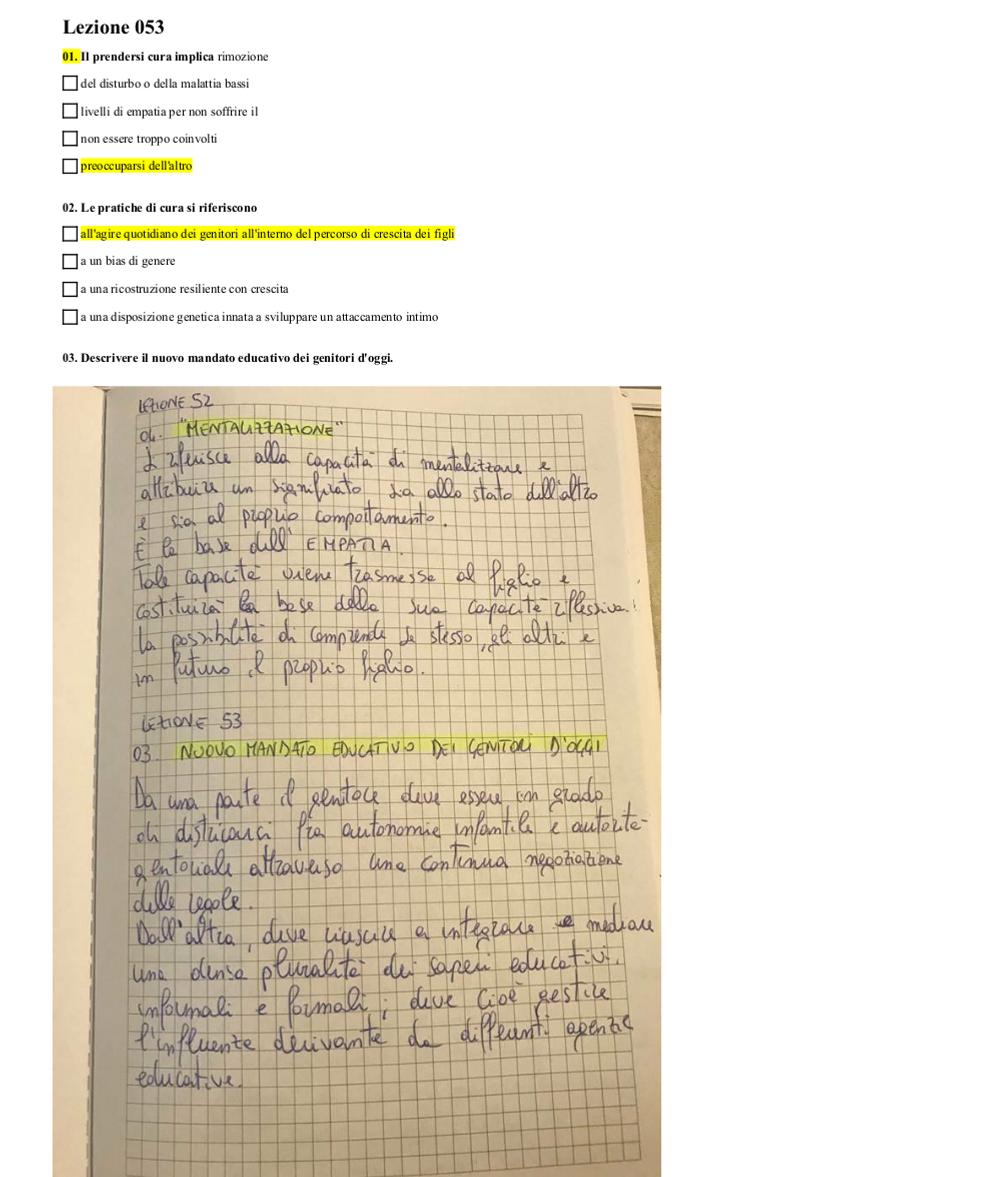 Lezione 053
01. Il prendersi cura implica rimozione
del disturbo o della malattia bassi
livelli di empatia per non soffrire il
non essere troppo coinvolti
preoccuparsi dell'altro
02. Le pratiche di cura si riferiscono
all'agire quotidiano dei genitori all'interno del percorso di crescita dei figli
a un bias di genere
a una ricostruzione resiliente con crescita
a una disposizione genetica innata a sviluppare un attaccamento intimo
03. Descrivere il nuovo mandato educativo dei genitori d'oggi.
LEZIONE 52
04. "MENTALIZZAZIONE"
alla capacità di mentalizzare e
attribuire un significato sia allo stato dell'altro
e sia al proprio comportamento.
È la base dell'EMPATIA.
Tale capacità viene trasmessa al figlio e
costituirà la base della sua capacità riflessiva:
la possibilità di comprende se stesso, gli altri e
in futuro il proprio figlio.
LEZIONE 53
03. NUOVO MANDATO EDUCATIVO DEI GENITORI D'OGGI
Da una parte il genitore deve essere in grado
di districarci fra autonomia infantile e autorità
genitoriale attraverso una continua negoziazione
delle regole.
Dall'altra, deve riuscire a integrare e mediare
una densa pluralità dei saperi educativi,
informali e formali; deve cioè gestire
l'influenza derivante da differenti agenzie
educative.